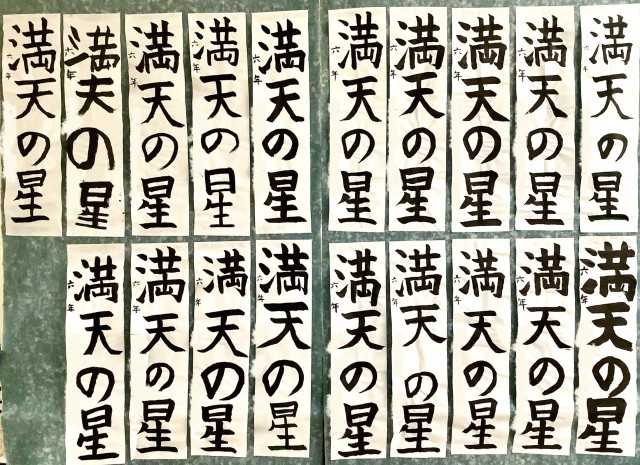 満天の星
六年
満天の星
六年
満天の星
六年
満天の星
六年
満天の星
六年
満天の星
六年
満天の星
六年
満天の星
六年
満天の星
六年
満天の星
六年
満天の星
六年
満天の星
六年
満天の星
六年
満天の星
六年
満天の星
六年
満天の星
六年
満天の星
六年
満天の星
六年
満天の星
六年